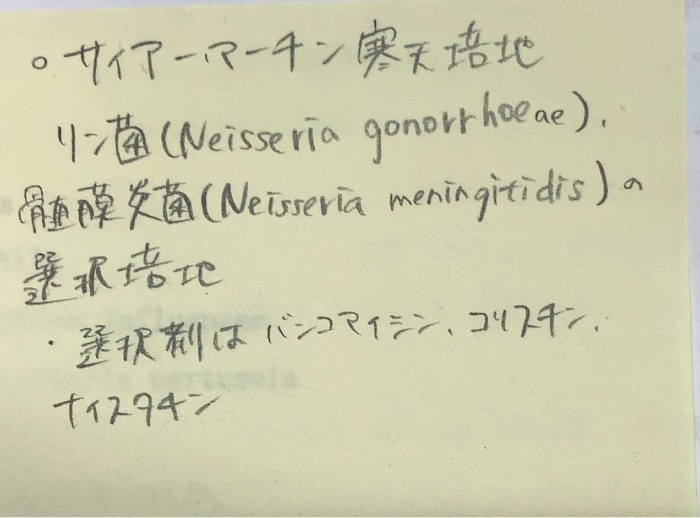 ○サイアーマーチン寒天培地
リン菌(Neisseria gonorrhoeae).
髄膜炎菌(Neisseria meningitidis)の
選択培地
・選択剤はバンコマイシン、コリスチン、
ナイスタチン
influenzae
pertussis